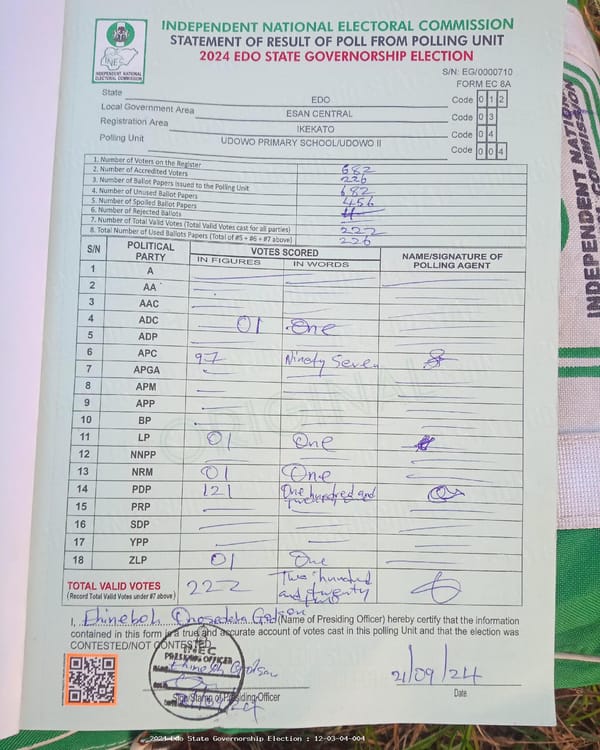 INDEPENDENT NATIONAL ELECTORAL COMMISSION
STATEMENT OF RESULT OF POLL FROM POLLING UNIT
2024 EDO STATE GOVERNORSHIP ELECTION
INEC
INDEPENDENT NATIONAL
ELECTORAL COMMISSION
S/N: EG/0000710
FORM EC 8A
State EDO Code 0 1 2
Local Government Area ESAN CENTRAL Code 0 3
Registration Area IKEKATO Code 0 4
Polling Unit UDOWO PRIMARY SCHOOL/UDOWO II Code 0 0 4
1. Number of Voters on the Register 682
2. Number of Accredited Voters 226
3. Number of Ballot Papers Issued to the Polling Unit 682
4. Number of Unused Ballot Papers 456
5. Number of Spoiled Ballot Papers
6. Number of Rejected Ballots
7. Number of Total Valid Votes (Total Valid Votes cast for all parties) 222
8. Total Number of Used Ballots Papers (Total of #5 + #6 + #7 above) 226
S/N POLITICAL PARTY VOTES SCORED NAME/SIGNATURE OF POLLING AGENT
IN FIGURES IN WORDS
1 A
2 AA
3 AAC
4 ADC 01 One
5 ADP
6 APC 97 Ninety Seven
7 APGA
8 APM
9 APP
10 BP
11 LP 01 One
12 NNPP
13 NRM 01 One
14 PDP 121 One hundred and twenty one
15 PRP
16 SDP
17 YPP
18 ZLP 01 One
ORIGINAL
TOTAL VALID VOTES 222 Two hundred and twenty two
(Record Total Valid Votes under #7 above)
I, Ehineboh Godson (Name of Presiding Officer) hereby certify that the information
contained in this form is a true and accurate account of votes cast in this polling Unit and that the election was
CONTESTED/NOT CONTESTED
INEC
PRESIDING OFFICER
Sign/Stamp of Presiding Officer
21/09/24
Date
INDEPENDENT NATIONAL
COMMISSION
2024 Edo State Governorship Election : 12-03-04-004